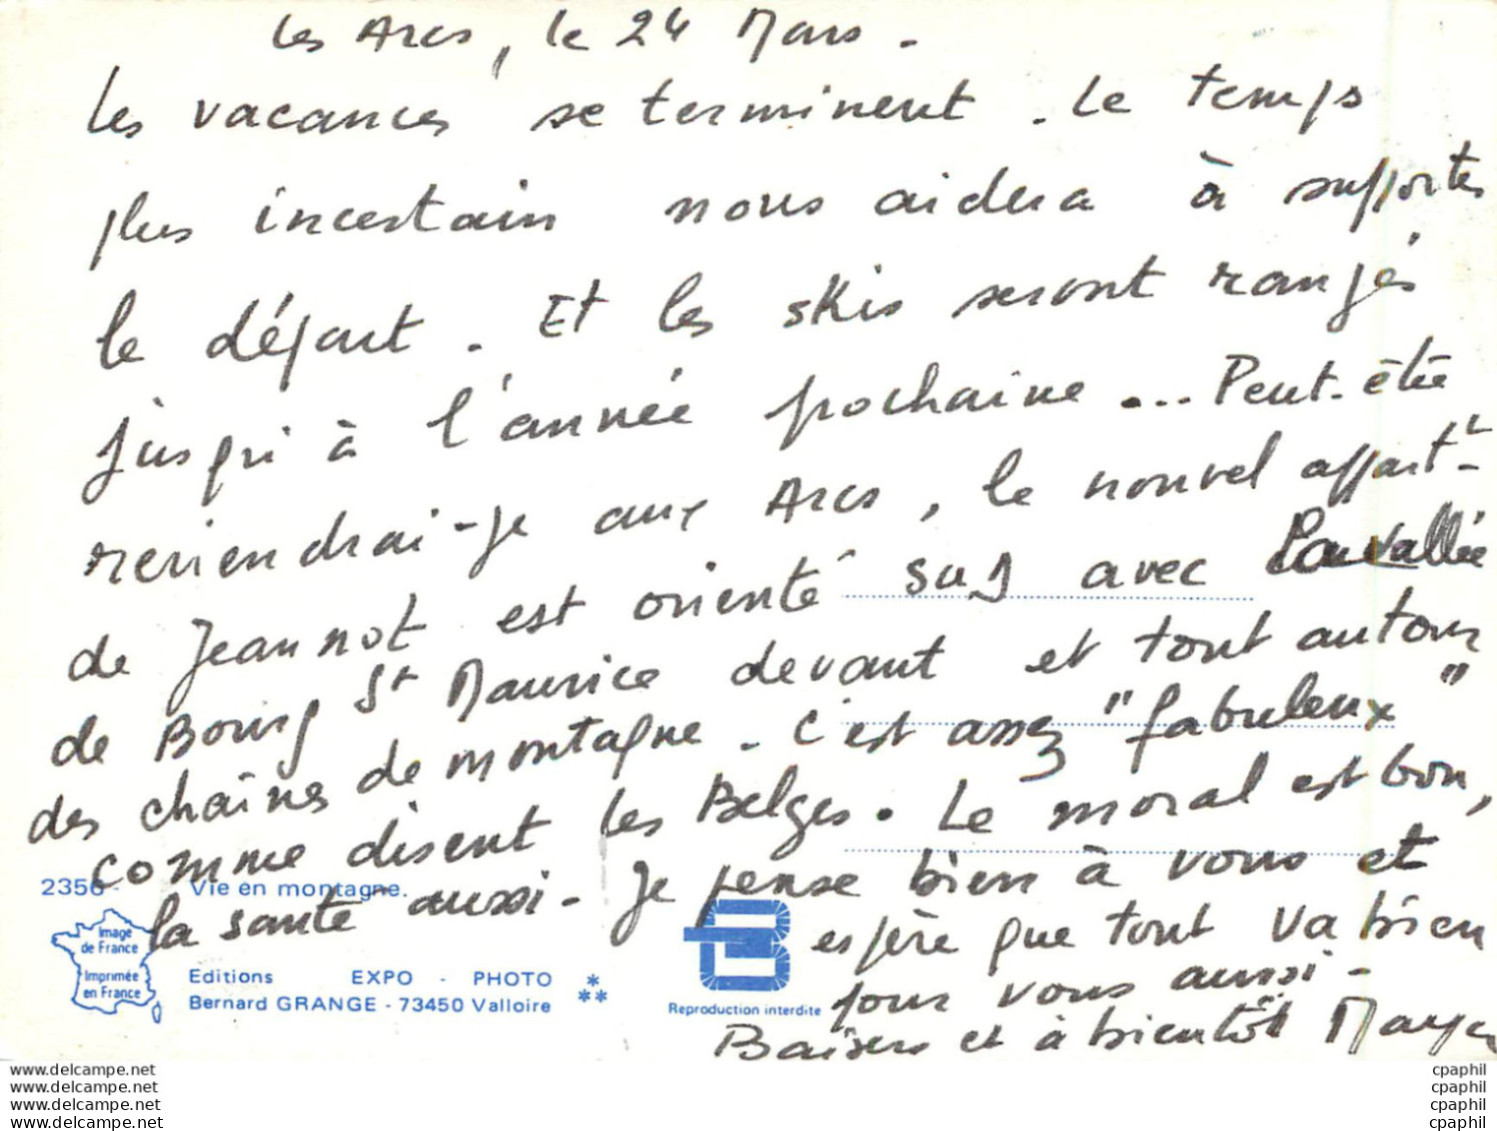 Les Arcs, le 24 Mars.
Les vacances se terminent. Le temps
plus incertain nous aidera à supporter
le départ. Et les skis seront rangés
jusqu'à l'année prochaine... Peut-être
reviendrai-je aux Arcs, le nouvel appart^t-
de Jeannot est orienté sud avec la vallée
de Bourg St Maurice devant et tout autour
des chaînes de montagne. C'est assez "fabuleux"
comme disent les Belges. Le moral est bon,
la santé aussi. Je pense bien à vous et
espère que tout va bien
pour vous aussi.
Baisers et à bientôt
2356 - Vie en montagne.
Image de France
Imprimée en France
Editions EXPO - PHOTO
Bernard GRANGE - 73450 Valloire
Reproduction interdite
www.delcampe.net
www.delcampe.net
www.delcampe.net
www.delcampe.net
cpaphil
cpaphil
cpaphil
cpaphil